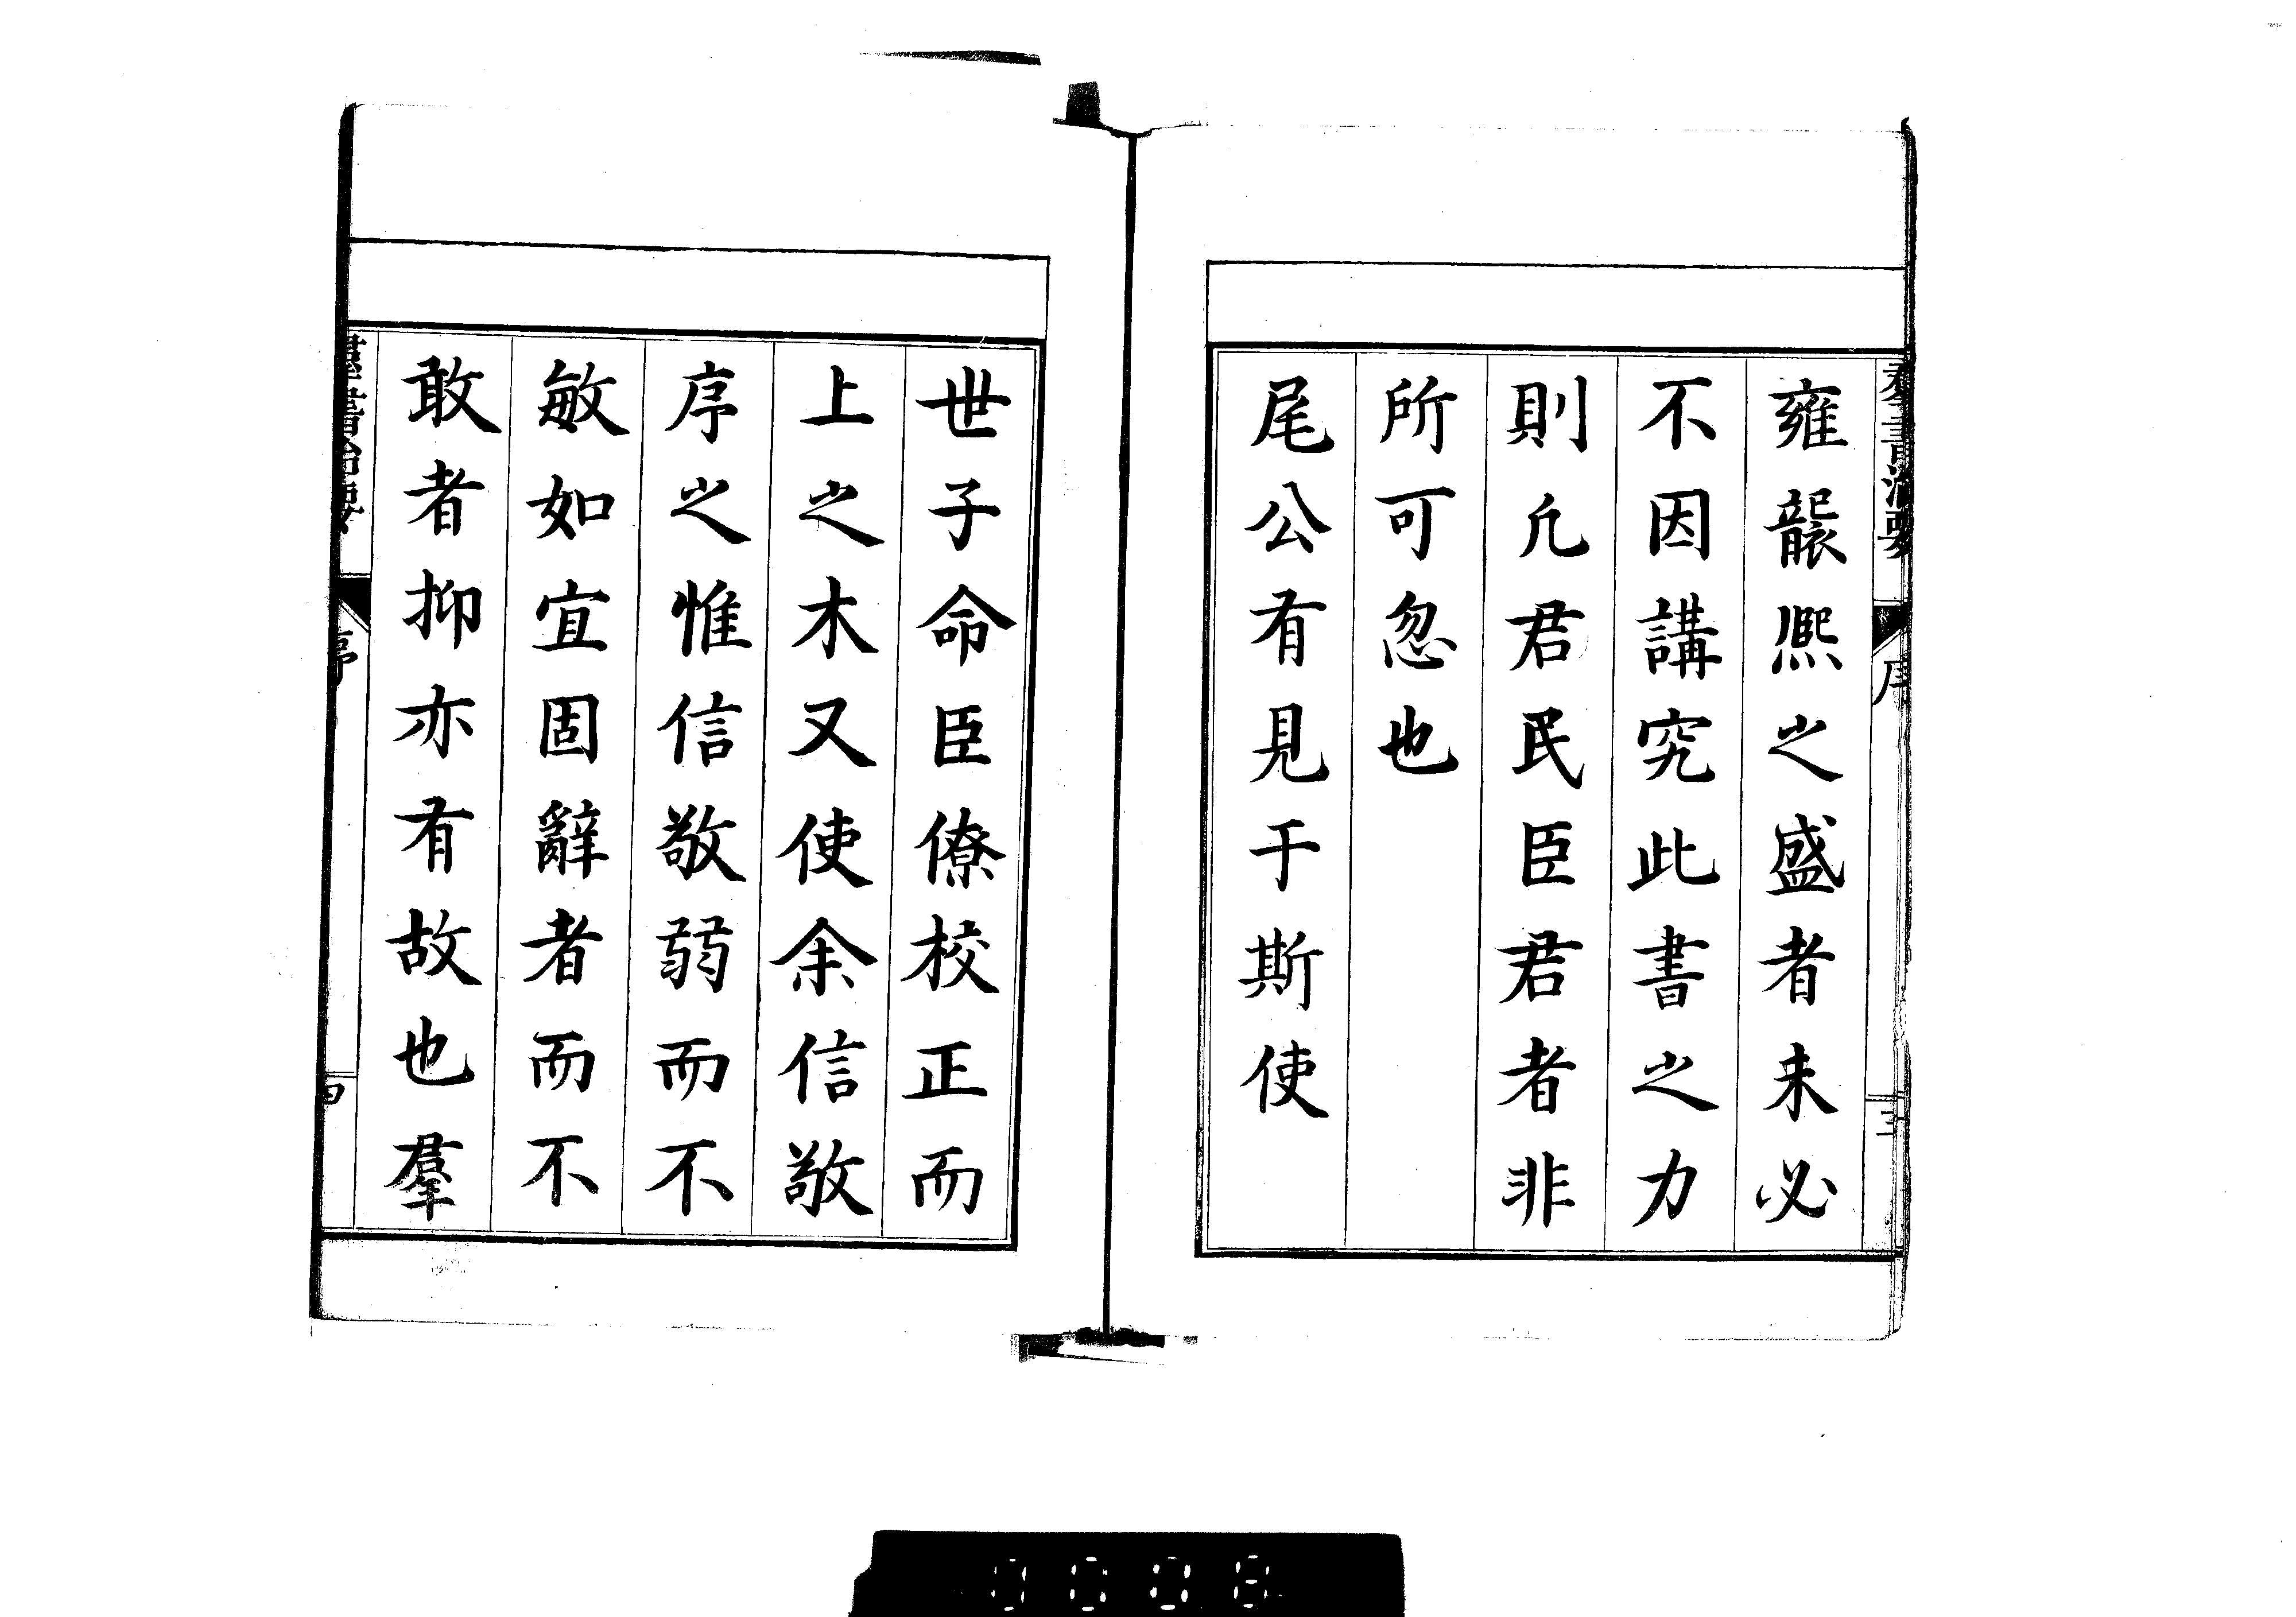 羣書治要 序 三
雍襲熈之盛者未必
不因講究此書之力
則凢君民臣君者非
所可忽也
尾公有見于斯使
世子命臣僚校正而
上之木又使余信敬
序之惟信敬弱而不
敏如宜固辭者而不
敢者抑亦有故也羣
羣書治要 序 四